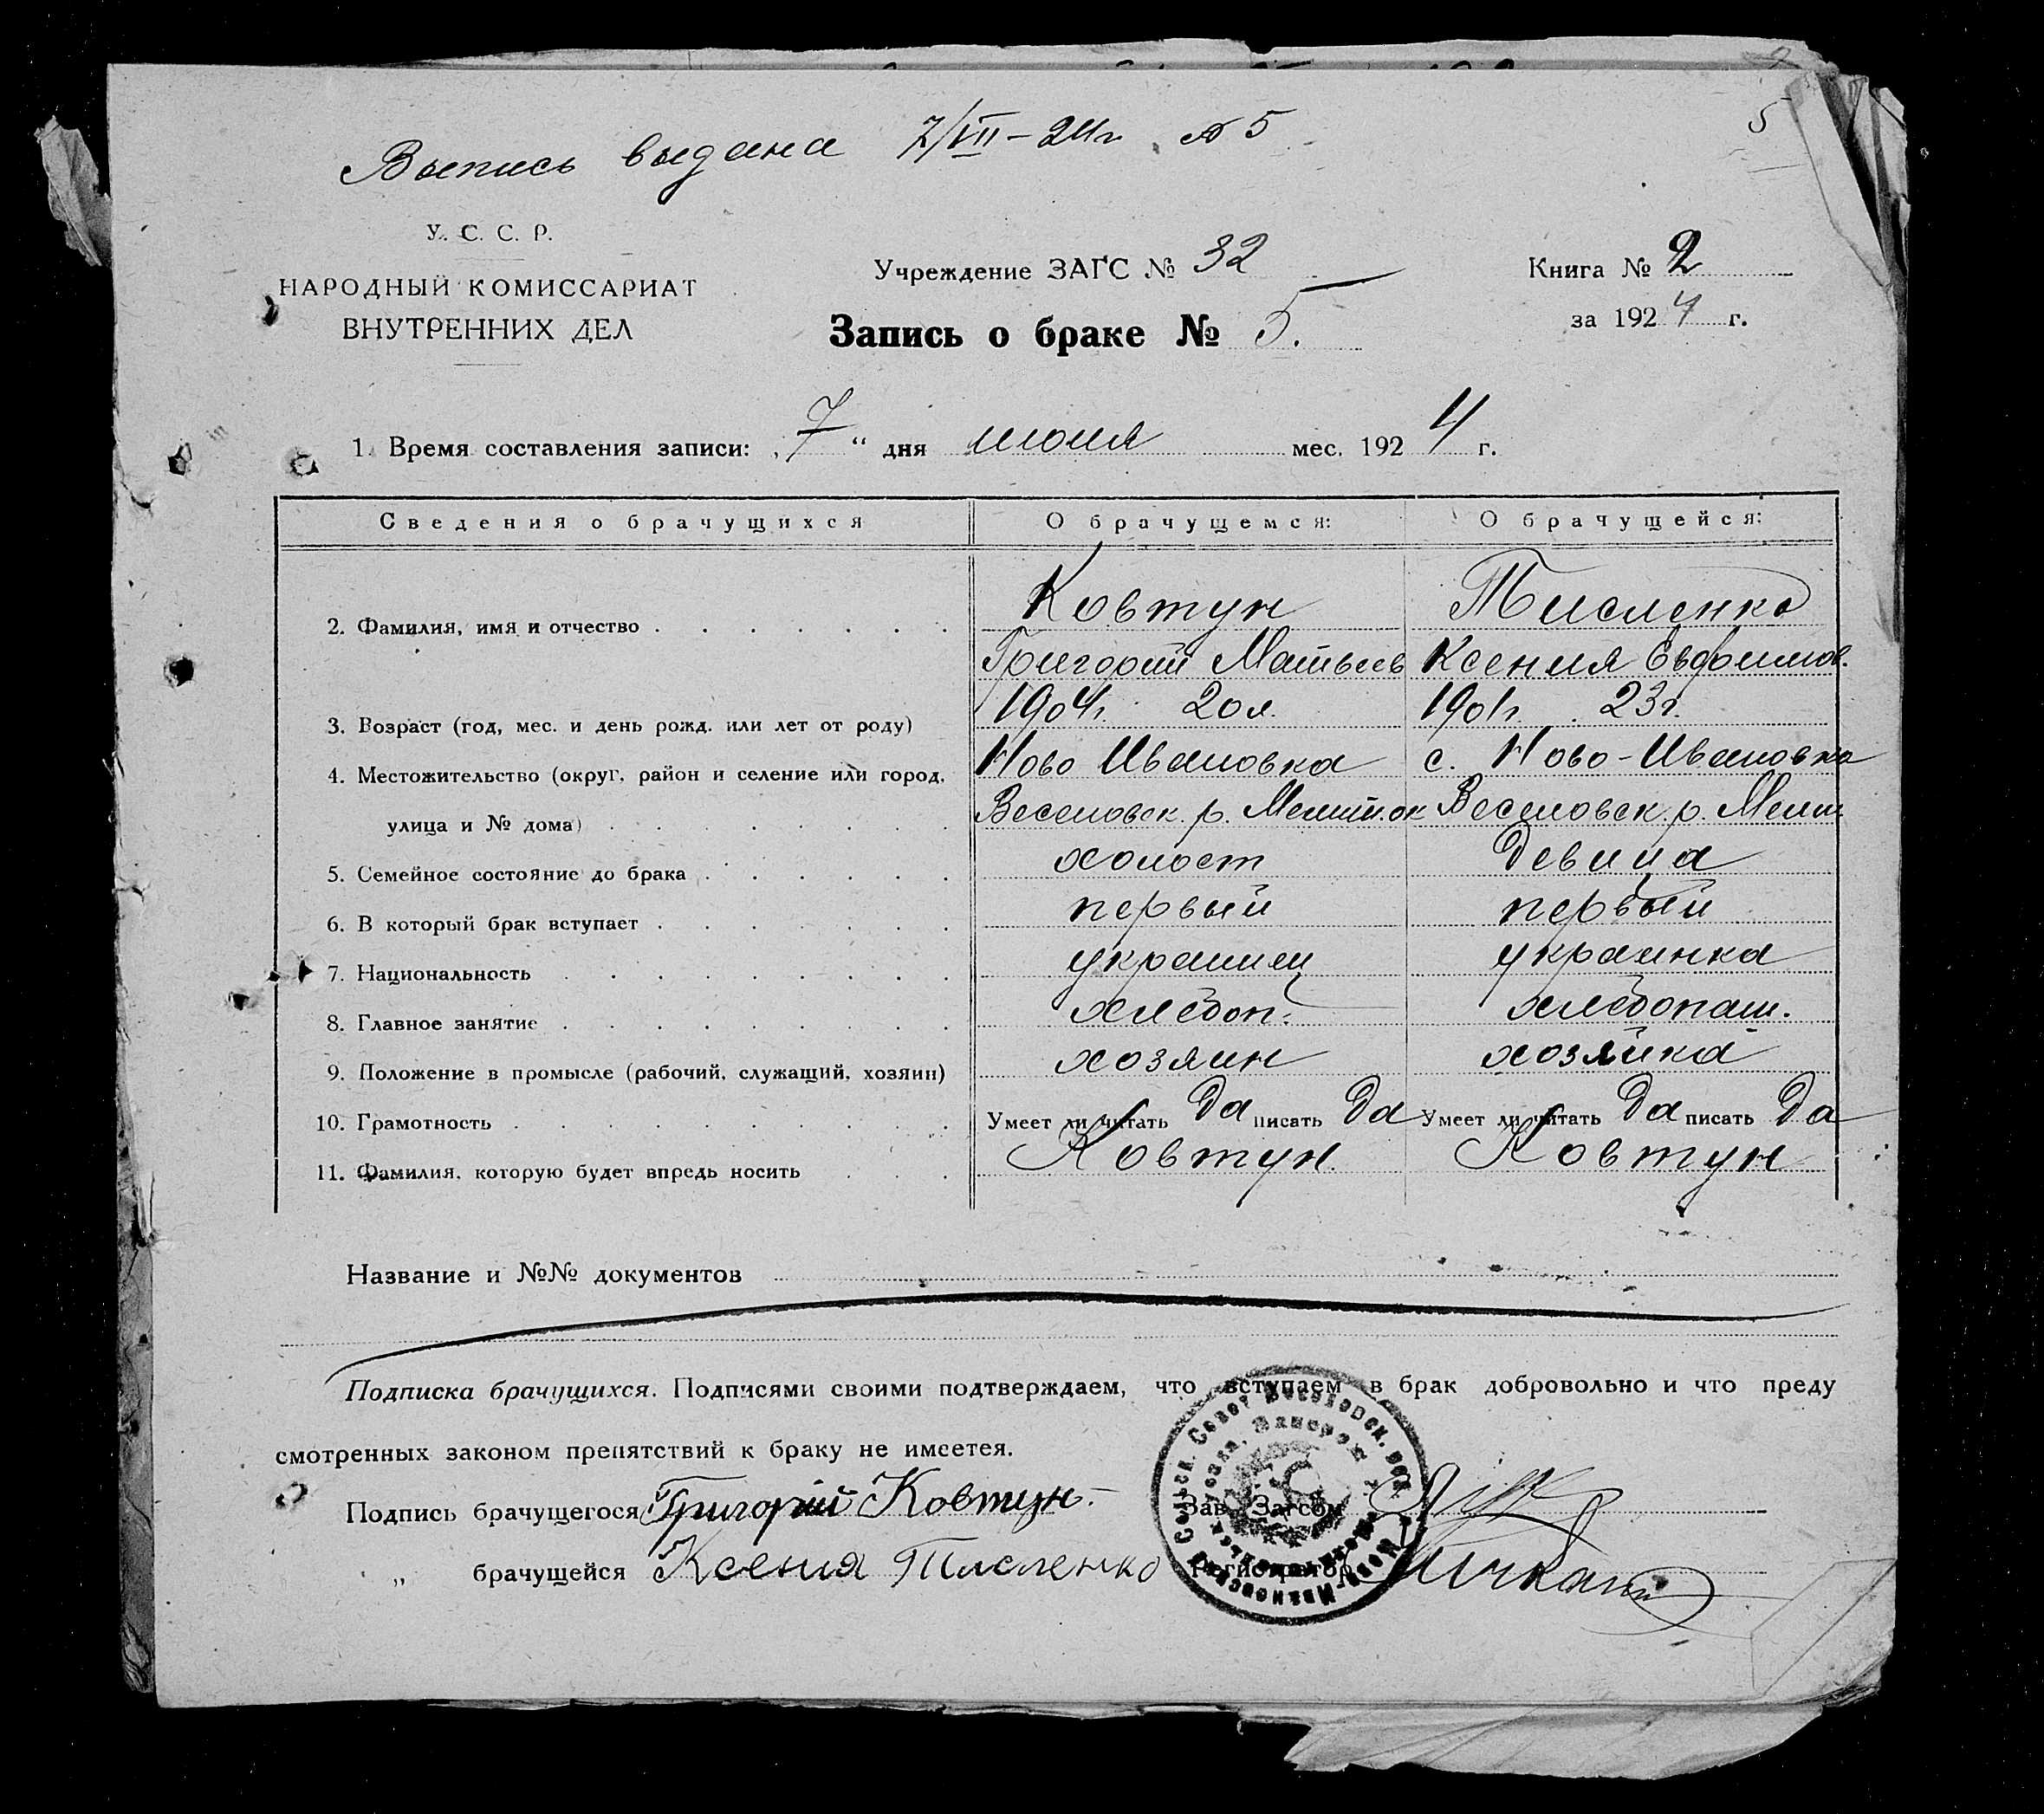 Выпись выдана 7/VII-24г. №5
5
У. С. С. Р.
НАРОДНЫЙ КОМИССАРИАТ
ВНУТРЕННИХ ДЕЛ
Учреждение ЗАГС № 32
Книга № 2
Запись о браке № 5.
за 1924 г.
1. Время составления записи: „7“ дня июля мес. 1924 г.
Сведения о брачущихся О брачущемся: О брачущейся:
2. Фамилия, имя и отчество Ковтун Тисленко
Григорий Матвеев Ксения Евфимов.
3. Возраст (год, мес. и день рожд. или лет от роду) 1904г. 20л. 1901г. 23г.
4. Местожительство (округ, район и селение или город, Ново Ивановка с. Ново-Ивановка
улица и № дома) Веселовск. р. Мелит. ок Веселовск. р. Мелит.
5. Семейное состояние до брака холост девица
6. В который брак вступает первый первый
7. Национальность украинец украинка
8. Главное занятие хлебоп. хлебопаш.
9. Положение в промысле (рабочий, служащий, хозяин) хозяин хозяйка
10. Грамотность Умеет ли читать Да писать Да Умеет ли читать Да писать Да
11. Фамилия, которую будет впредь носить Ковтун Ковтун
Название и №№ документов
Подписка брачущихся. Подписями своими подтверждаем, что вступаем в брак добровольно и что преду
смотренных законом препятствий к браку не имсетея.
Подпись брачущегося Григорий Ковтун. Зав. Загсом
„ брачущейся Ксения Тисленко Регистратор